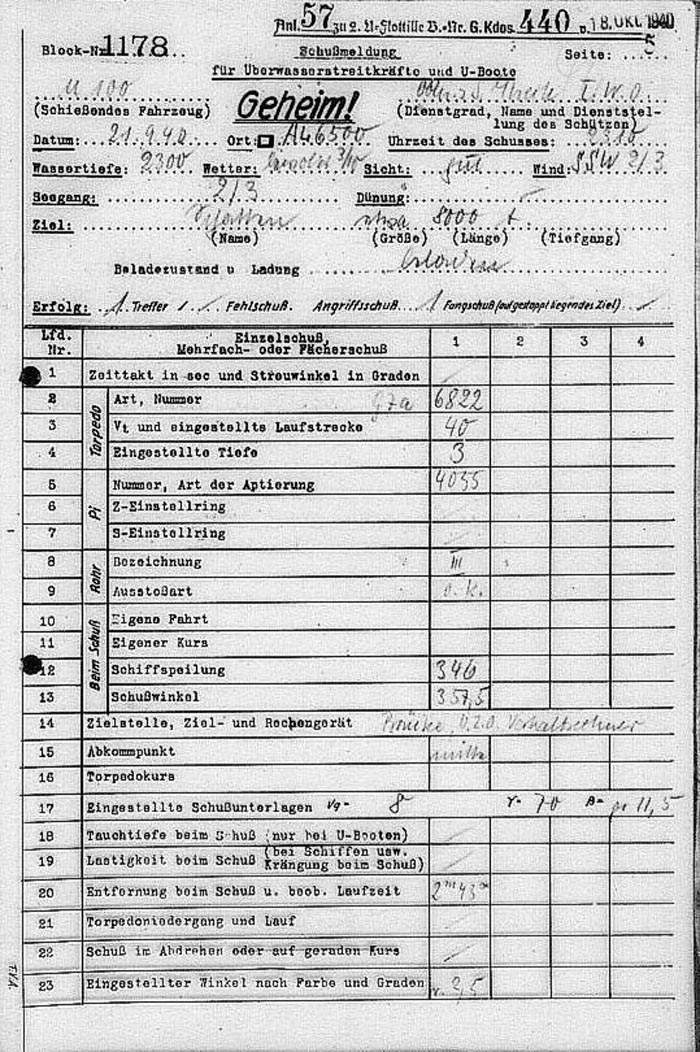 Anl. 57 zu 2. U-Flottille B.-Nr. G. Kdos 440 v. 18. OKT. 1940
Block-Nr 1178 Schußmeldung Seite: 5
für Überwasserstreitkräfte und U-Boote
U 100 I.W.O.
(Schießendes Fahrzeug) Geheim! (Dienstgrad, Name und Dienststel-
lung des Schützen)
Datum: 21.9.40. Ort: Uhrzeit des Schusses:
Wassertiefe: 2300 Wetter: 3/10 Sicht: gut Wind: SSW 2/3
Seegang: 2/3 Dünung: -
Ziel: etwa 8000 t.
(Name) (Größe) (Länge) (Tiefgang)
Beladezustand u Ladung beladen
Erfolg: 1 Treffer / Fehlschuß. Angriffsschuß 1 Fangschuß (aufgestoppt liegendes Ziel)
Lfd. Nr. Einzelschuß, Mehrfach- oder Fächerschuß 1 2 3 4
1 Zeittakt in sec und Streuwinkel in Graden
Torpedo
2 Art, Nummer G7a 6822
3 Vt und eingestellte Laufstrecke 40
4 Eingestellte Tiefe 3
Pi
5 Nummer, Art der Aptierung 4035
6 Z-Einstellring
7 S-Einstellring
Rohr
8 Bezeichnung III
9 Ausstoßart
Beim Schuß
10 Eigene Fahrt
11 Eigener Kurs
12 Schiffspeilung 346
13 Schußwinkel 357,5
14 Zielstelle, Ziel- und Rechengerät Brücke, U.Z.O. Vorhaltrechner
15 Abkommpunkt mitte
16 Torpedokurs
17 Eingestellte Schußunterlagen Vg- 8 γ- 70 11,5
18 Tauchtiefe beim Schuß (nur bei U-Booten)
19 Lastigkeit beim Schuß (bei Schiffen usw. Krängung beim Schuß)
20 Entfernung beim Schuß u. beob. Laufzeit 2m 43s
21 Torpedoniedergang und Lauf
22 Schuß im Abdrehen oder auf geraden Kurs
23 Eingestellter Winkel nach Farbe und Graden r. 2,5